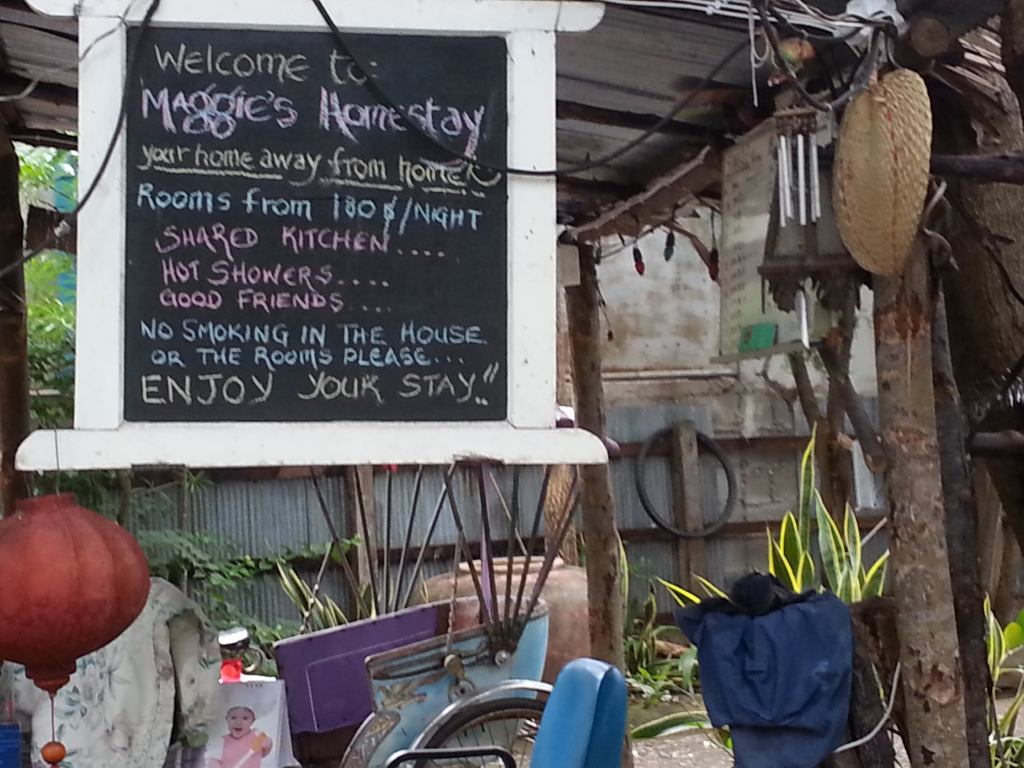 Welcome to:
Maggie's Homestay
your home away from home
Rooms from 180 ฿/NIGHT
SHARED KITCHEN....
HOT SHOWERS....
GOOD FRIENDS....
NO SMOKING IN THE HOUSE
OR THE ROOMS PLEASE...
ENJOY YOUR STAY!!